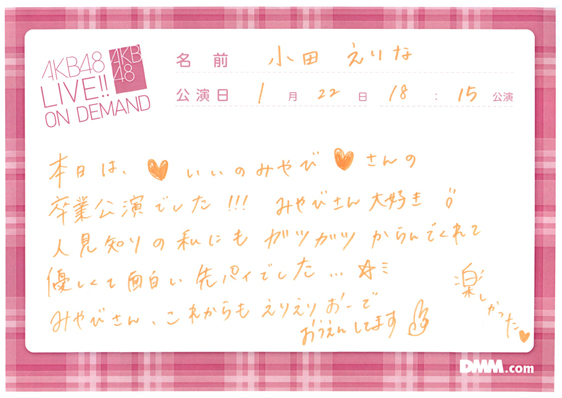 AKB48
LIVE!!
ON DEMAND
AKB
48
名前 小田えりな
公演日 1月22日 18:15公演
本日は、♥いいのみやび♥さんの
卒業公演でした!!! みやびさん大好き
人見知りの私にもガツガツからんでくれて
優しくて面白い先パイでした...☆ミ
みやびさん、これからもえりえりおーで
おうえんしてます
楽しかった♥
DMM.com